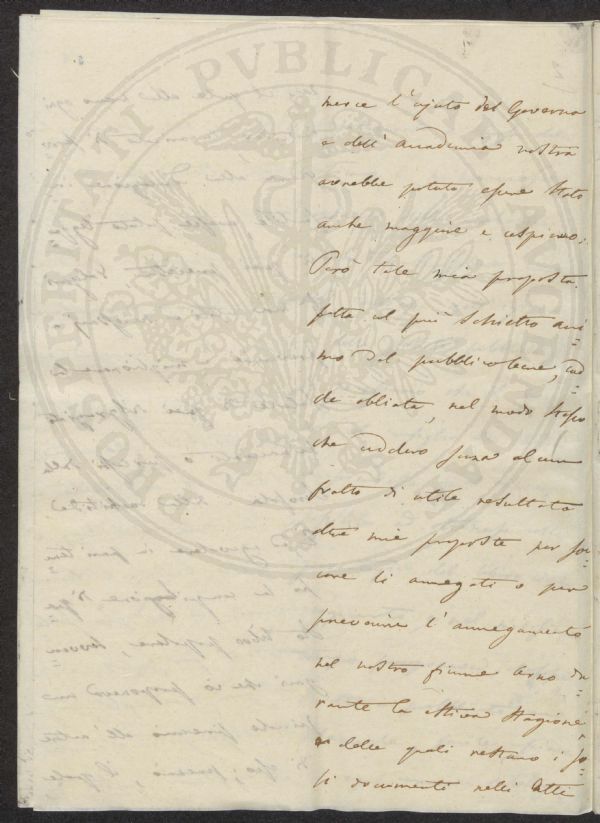 PROSPERITATI PVBLICAE AVGENDA
merce l'ajuto del Governo
e dell' Accademia nostra
avrebbe potuto essere stato
anche maggiore e cospicuo.
Però tale mia proposta
fatta col più schietto ani
mo del pubblico bene, cad
de obliata, nel modo stesso
che caddero senza alcun
frutto di utile resultato
altre mie proposte per soc
correre li annegati o per
prevenire l'annegamento
nel nostro fiume Arno du
rante la estiva stagione
delle quali restano i so
li documenti nelli Atti